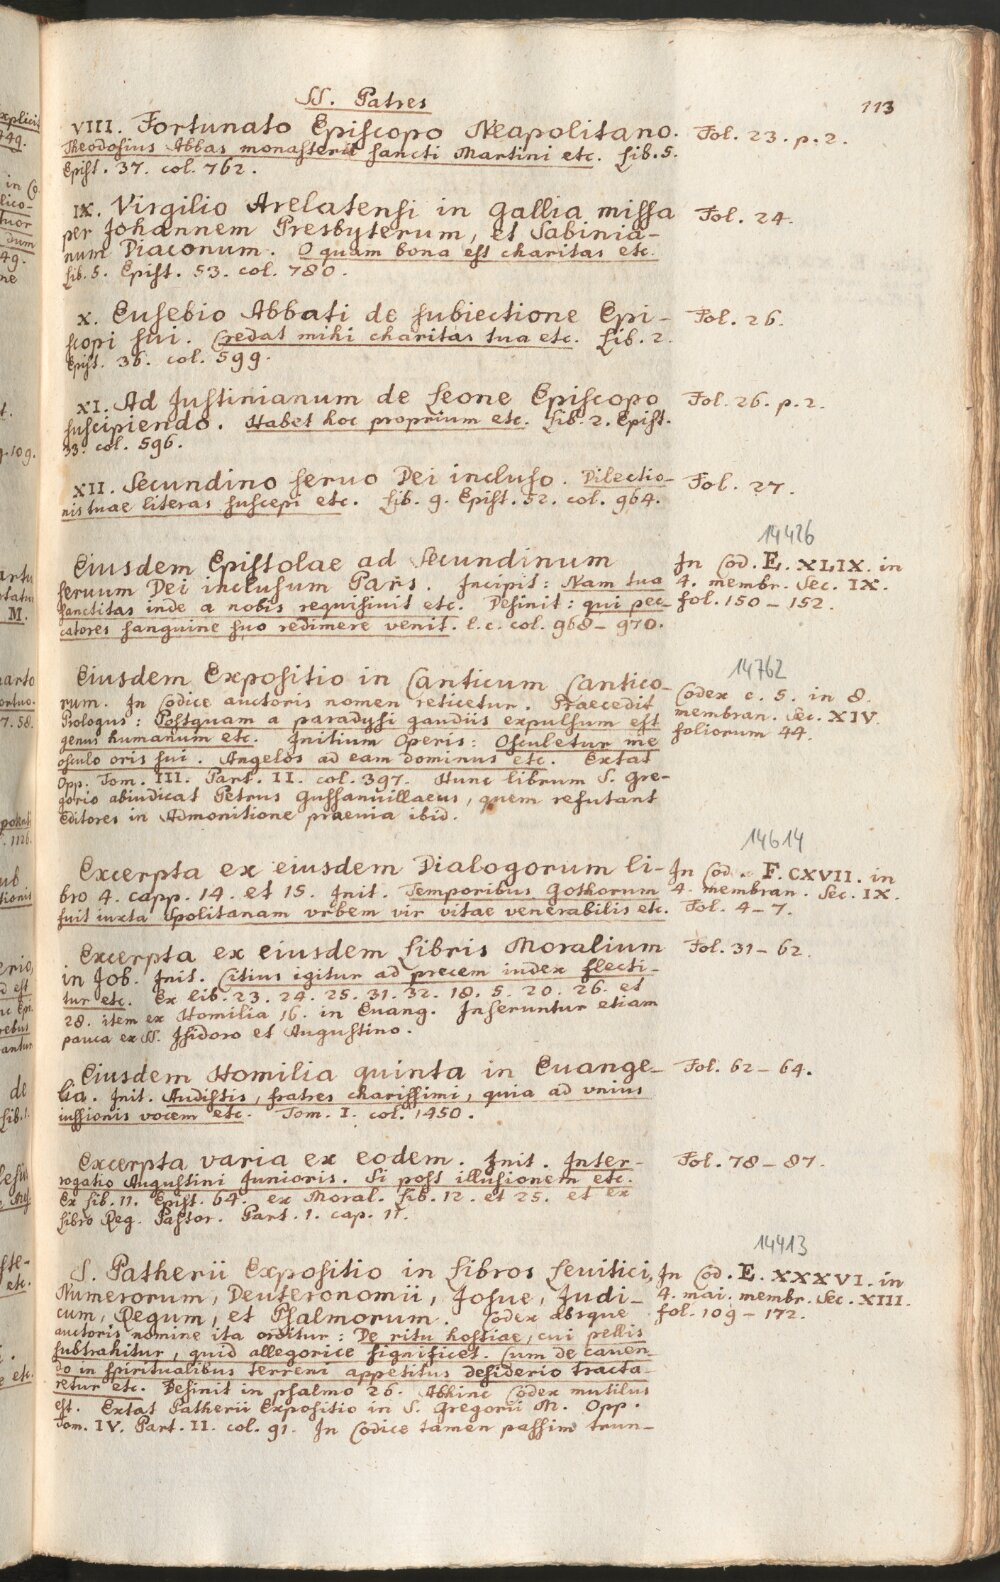 SS. Patres
113
VIII. Fortunato Episcopo Neapolitano. Fol. 23. p. 2.
Theodosius Abbas monasterii sancti Martini etc. Lib. 5.
Epist. 37. col. 762.
IX. Virgilio Arelatensi in Gallia missa Fol. 24.
per Johannem Presbyterum, et Sabinia-
num Diaconum. O quam bona est charitas etc.
Lib. 5. Epist. 53. col. 780.
X. Eusebio Abbati de subiectione Epi- Fol. 26.
scopi sui. Credat mihi charitas tua etc. Lib. 2.
Epist. 36. col. 599.
XI. Ad Justinianum de Leone Episcopo Fol. 26. p. 2.
suscipiendo. Habet hoc proprium etc. Lib. 2. Epist.
33. col. 596.
XII. Secundino seruo Dei incluso. Dilectio- Fol. 27.
nis tuae literas suscepi etc. Lib. 9. Epist. 52. col. 964.
14426
Eiusdem Epistolae ad Secundinum In Cod. E. XLIX. in
seruum Dei inclusum Pars. Incipit: Nam tua 4. membr. Sec. IX.
sanctitas inde a nobis requisiuit etc. Definit: qui pec- fol. 150 – 152.
catores sanguine suo redimere venit. l. c. col. 968 – 970.
14762
Eiusdem Expositio in Canticum Cantico- Codex c. 5. in 8.
rum. In Codice auctoris nomen reticetur. Praecedit membran. Sec. XIV.
Prologus: Postquam a paradysi gaudiis expulsum est foliorum 44.
genus humanum etc. Initium Operis: Osculetur me
osculo oris sui. Angelos ad eam dominus etc. Extat
Opp. Tom. III. Part. II. col. 397. Hunc librum S. Gre-
gorio abiudicat Petrus Gussanvillaeus, quem refutant
Editores in Admonitione praevia ibid.
14614
Excerpta ex eiusdem Dialogorum li- In Cod. F. CXVII. in
bro 4. capp. 14. et 15. Init. Temporibus Gothorum 4. membran. Sec. IX
fuit iuxta Spolitanam vrbem vir vitae venerabilis etc. Fol. 4 – 7.
Excerpta ex eiusdem Libris Moralium Fol. 31 – 62.
in Job. Init. Citius igitur ad precem iudex flecti-
tur etc. Ex lib. 23. 24. 25. 31. 32. 18. 5. 20. 26. et
28. item ex Homilia 16. in Euang. Inseruntur etiam
pauca ex SS. Isidoro et Augustino.
Eiusdem Homilia quinta in Euange- Fol. 62 – 64.
lia. Init. Audistis, fratres charissimi, quia ad vnius
iussionis vocem etc. Tom. I. col. 1450.
Excerpta varia ex eodem. Init. Inter- Fol. 78 – 87.
rogatio Augustini Junioris. Si post illusionem etc.
Ex Lib. 11. Epist. 64. ex Moral. Lib. 12. et 25. et ex
Libro Reg. Pastor. Part. 1. cap. 11.
14413
S. Patherii Expositio in Libros Leuitici, In Cod. E. XXXVI. in
Numerorum, Deuteronomii, Josue, Judi- 4. mai. membr. Sec. XIII.
cum, Regum, et Psalmorum. Codex absque fol. 109 – 172.
auctoris nomine ita orditur: De ritu hostiae, cui pellis
subtrahitur, quid allegorice significet. Cum de cauen-
do in spiritualibus terreni appetitus desiderio tracta-
retur etc. Definit in psalmo 26. Abhinc Codex mutilus
est. Extat Patherii Expositio in S. Gregorii M. Opp.
Tom. IV. Part. II. col. 91. In Codice tamen passim trun-